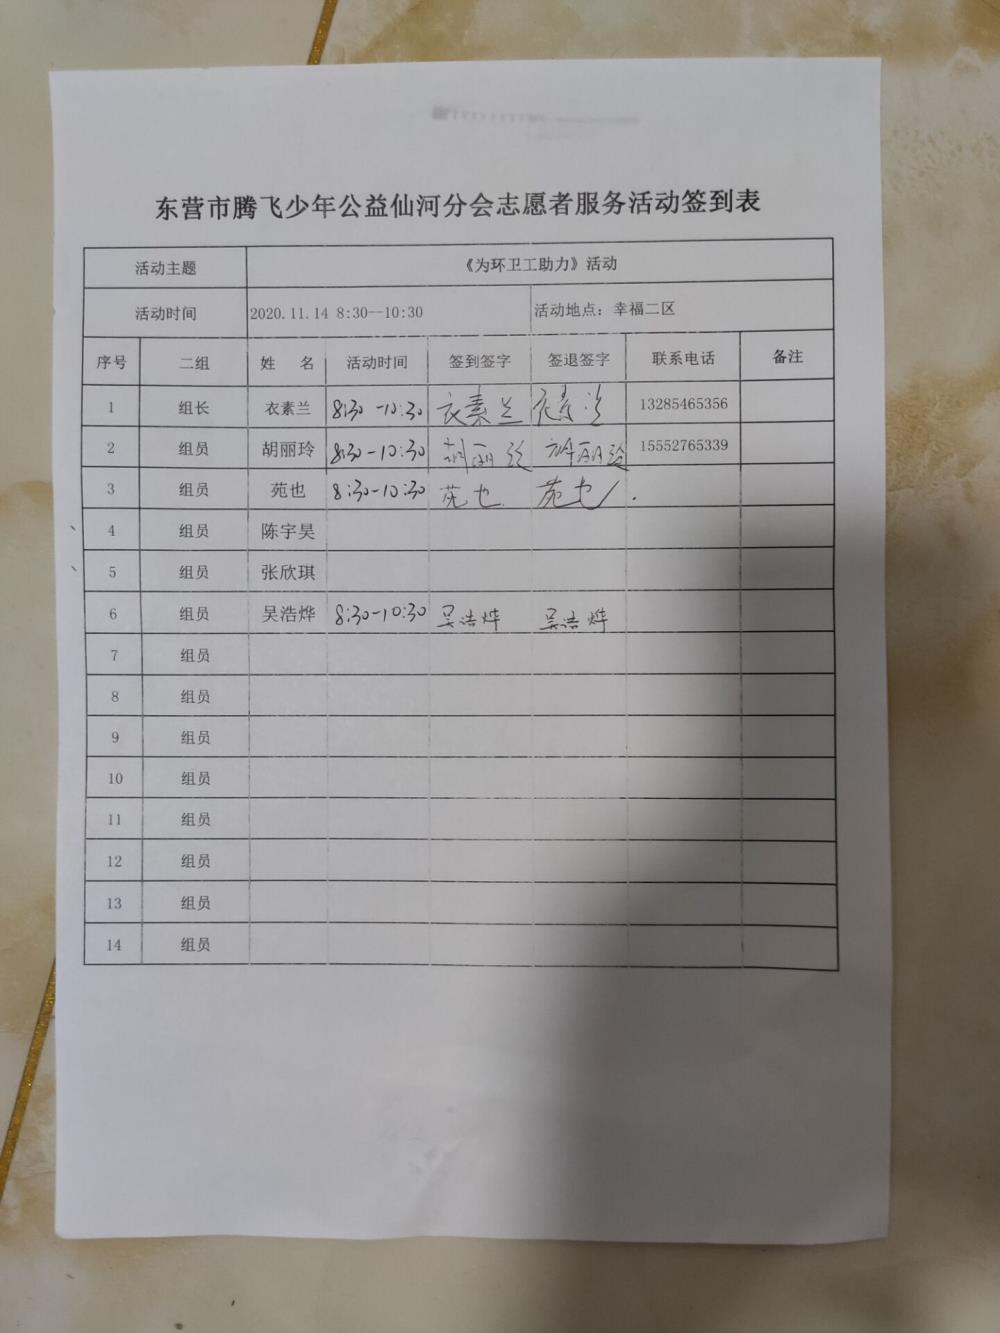 东营市腾飞少年公益仙河分会志愿者服务活动签到表
活动主题 《为环卫工助力》活动
活动时间 2020.11.14 8:30--10:30 活动地点：幸福二区
序号 二组 姓 名 活动时间 签到签字 签退签字 联系电话 备注
1 组长 衣素兰 8:30-10:30 衣素兰 衣素兰 13285465356
2 组员 胡丽玲 8:30-10:30 胡丽玲 胡丽玲 15552765339
3 组员 苑也 8:30-10:30 苑也 苑也
4 组员 陈宇昊
5 组员 张欣琪
6 组员 吴浩烨 8:30-10:30 吴浩烨 吴浩烨
7 组员
8 组员
9 组员
10 组员
11 组员
12 组员
13 组员
14 组员